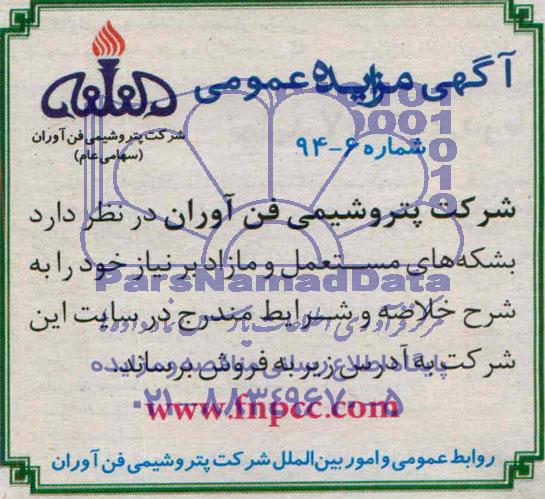 آگهی مزایده عمومی
شماره ۶-۹۴
شرکت پتروشیمی فن آوران
(سهامی عام)
شرکت پتروشیمی فن آوران در نظر دارد
بشکه‌های مستعمل و مازاد بر نیاز خود را به
شرح خلاصه و شرایط مندرج در سایت این
شرکت به آدرس زیر به فروش برساند.
www.fnpcc.com
روابط عمومی و امور بین الملل شرکت پتروشیمی فن آوران
ParsNamadData
پایگاه اطلاع رسانی مناقصه و مزایده
۰۲۱-۸۸۳۴۹۶۷۰-۵